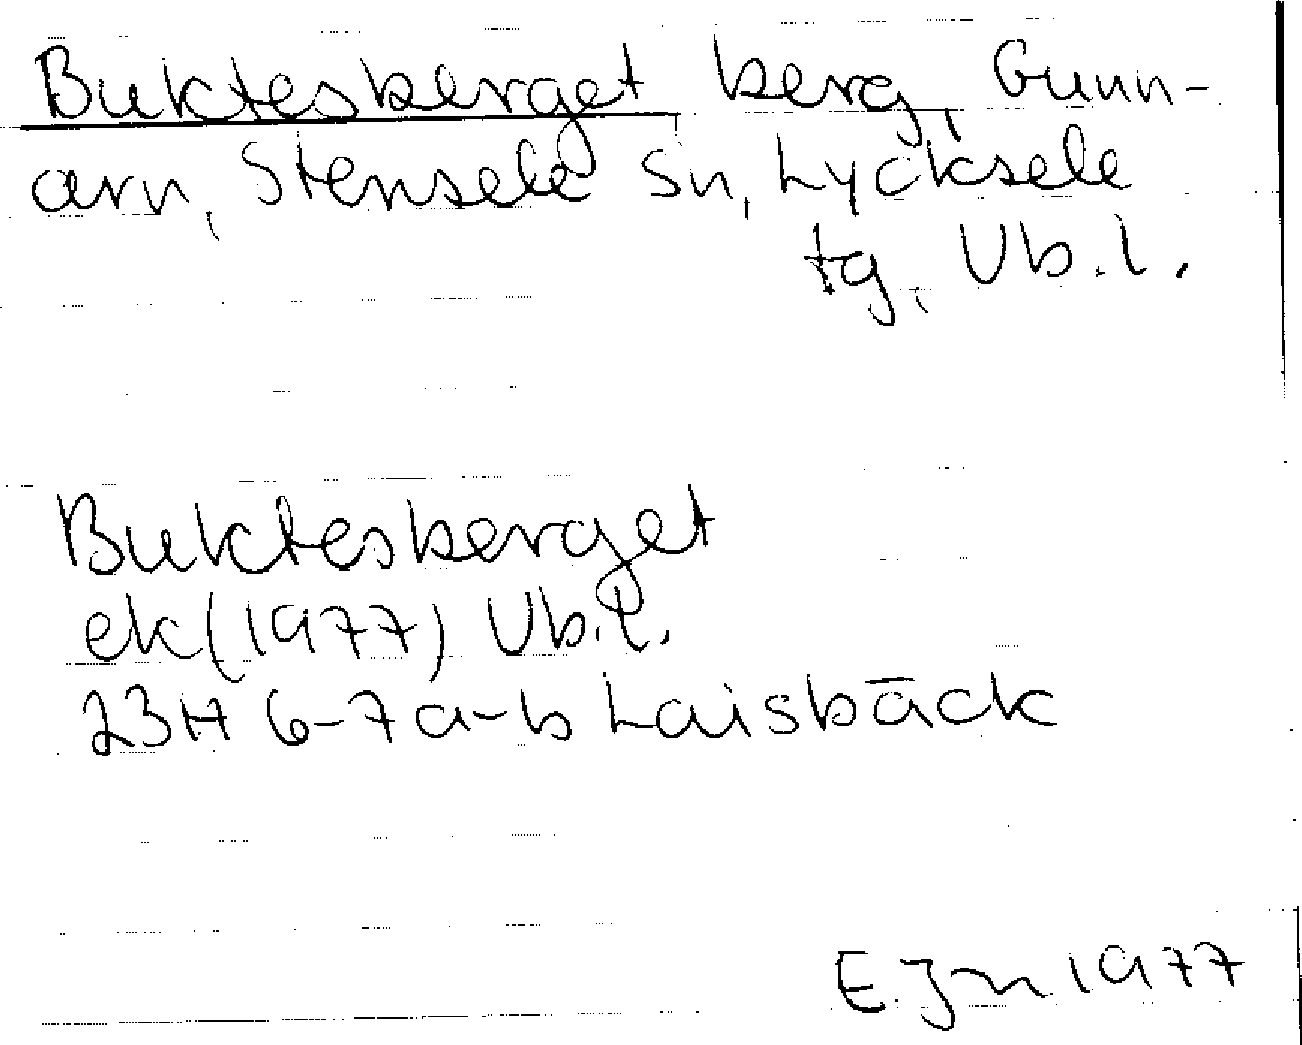 Buktesberget berg, Gunn-
arn, Stensele sn, Lycksele
tg, Vb.l.
Buktesberget
ek (1977) Vb.l.
23H 6-7a-b Laisbäck
E. Jn. 1977